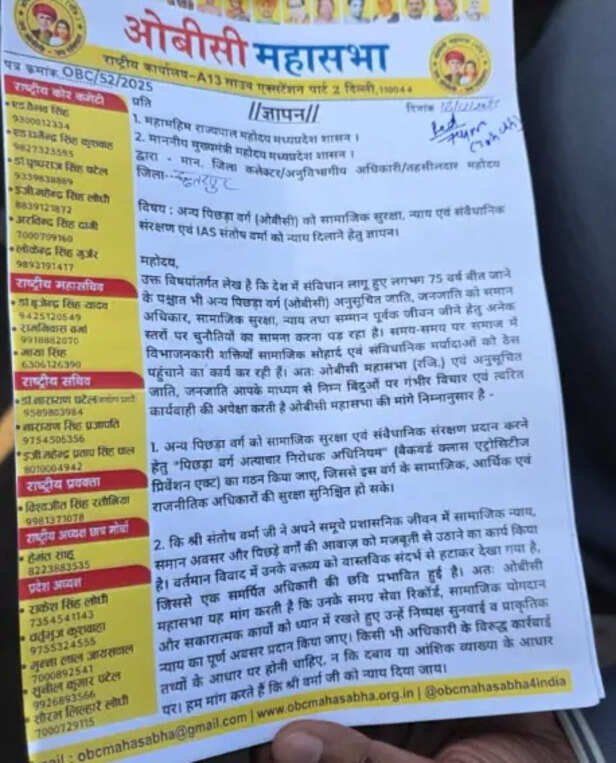 ओबीसी महासभा
राष्ट्रीय कार्यालय-A13 साउथ एक्सटेंशन पार्ट 2 दिल्ली, 110044
पत्र क्रमांक OBC/52/2025
//ज्ञापन//
दिनांक
राष्ट्रीय कोर कमेटी
9300012334
9827323595
डॉ पुष्पराज सिंह पटेल
9339838889
इंजी.महेन्द्र सिंह लोधी
8839121872
अरविन्द सिंह दांगी
7000709160
लोकेन्द्र सिंह गुर्जर
9893191417
राष्ट्रीय महासचिव
डॉ बृजेन्द्र सिंह यादव
9425120549
रामनिवास वर्मा
9918882070
माया सिंह
6306126390
राष्ट्रीय सचिव
डॉ नारायण पटेल
9589803984
नारायण सिंह प्रजापति
9754506356
इंजी महेन्द्र प्रताप सिंह पाल
8010004942
राष्ट्रीय प्रवक्ता
विश्वजीत सिंह रतौनिया
9981371078
राष्ट्रीय अध्यक्ष छात्र मोर्चा
हेमंत साहू
8223883535
प्रदेश अध्यक्ष
राकेश सिंह लोधी
7354541143
चर्तुभुज कुशवाहा
9755324555
मुन्ना लाल जायसवाल
7000892541
सुनील कुमार पटेल
9926893566
सौरभ लिल्हारे लोधी
7000729115
प्रति
1. महामहिम राज्यपाल महोदय मध्यप्रदेश शासन ।
2. माननीय मुख्यमंत्री महोदय मध्यप्रदेश शासन ।
द्वारा - मान. जिला कलेक्टर/अनुविभागीय अधिकारी/तहसीलदार महोदय
जिला- छतरपुर
विषय : अन्य पिछड़ा वर्ग (ओबीसी) को सामाजिक सुरक्षा, न्याय एवं संवैधानिक
संरक्षण एवं IAS संतोष वर्मा को न्याय दिलाने हेतु ज्ञापन।
महोदय,
उक्त विषयांतर्गत लेख है कि देश में संविधान लागू हुए लगभग 75 वर्ष बीत जाने
के पश्चात भी अन्य पिछड़ा वर्ग (ओबीसी) अनुसूचित जाति, जनजाति को समान
अधिकार, सामाजिक सुरक्षा, न्याय तथा सम्मान पूर्वक जीवन जीने हेतु अनेक
स्तरों पर चुनौतियों का सामना करना पड़ रहा है। समय-समय पर समाज में
विभाजनकारी शक्तियाँ सामाजिक सौहार्द एवं संविधानिक मर्यादाओं को ठेस
पहुंचाने का कार्य कर रही हैं। अतः ओबीसी महासभा (रजि.) एवं अनुसूचित
जाति, जनजाति आपके माध्यम से निम्न बिंदुओं पर गंभीर विचार एवं त्वरित
कार्यवाही की अपेक्षा करती है ओबीसी महासभा की मांगे निम्नानुसार है -
1. अन्य पिछड़ा वर्ग को सामाजिक सुरक्षा एवं संवैधानिक संरक्षण प्रदान करने
हेतु "पिछड़ा वर्ग अत्याचार निरोधक अधिनियम" (बैकवर्ड क्लास एट्रोसिटीज
प्रिवेंशन एक्ट) का गठन किया जाए, जिससे इस वर्ग के सामाजिक, आर्थिक एवं
राजनीतिक अधिकारों की सुरक्षा सुनिश्चित हो सके।
2. कि श्री संतोष वर्मा जी ने अपने समूचे प्रशासनिक जीवन में सामाजिक न्याय,
समान अवसर और पिछड़े वर्गों की आवाज को मजबूती से उठाने का कार्य किया
है। वर्तमान विवाद में उनके वक्तव्य को वास्तविक संदर्भ से हटाकर देखा गया है,
जिससे एक समर्पित अधिकारी की छवि प्रभावित हुई है। अतः ओबीसी
महासभा यह मांग करती है कि उनके समग्र सेवा रिकॉर्ड, सामाजिक योगदान
और सकारात्मक कार्यों को ध्यान में रखते हुए उन्हें निष्पक्ष सुनवाई व प्राकृतिक
न्याय का पूर्ण अवसर प्रदान किया जाए। किसी भी अधिकारी के विरुद्ध कार्रवाई
तथ्यों के आधार पर होनी चाहिए, न कि दबाव या आंशिक व्याख्या के आधार
पर। हम मांग करते हैं कि श्री वर्मा जी को न्याय दिया जाय।
ail : obcmahasabha@gmail.com | www.obcmahasabha.org.in | @obcmahasabha4india